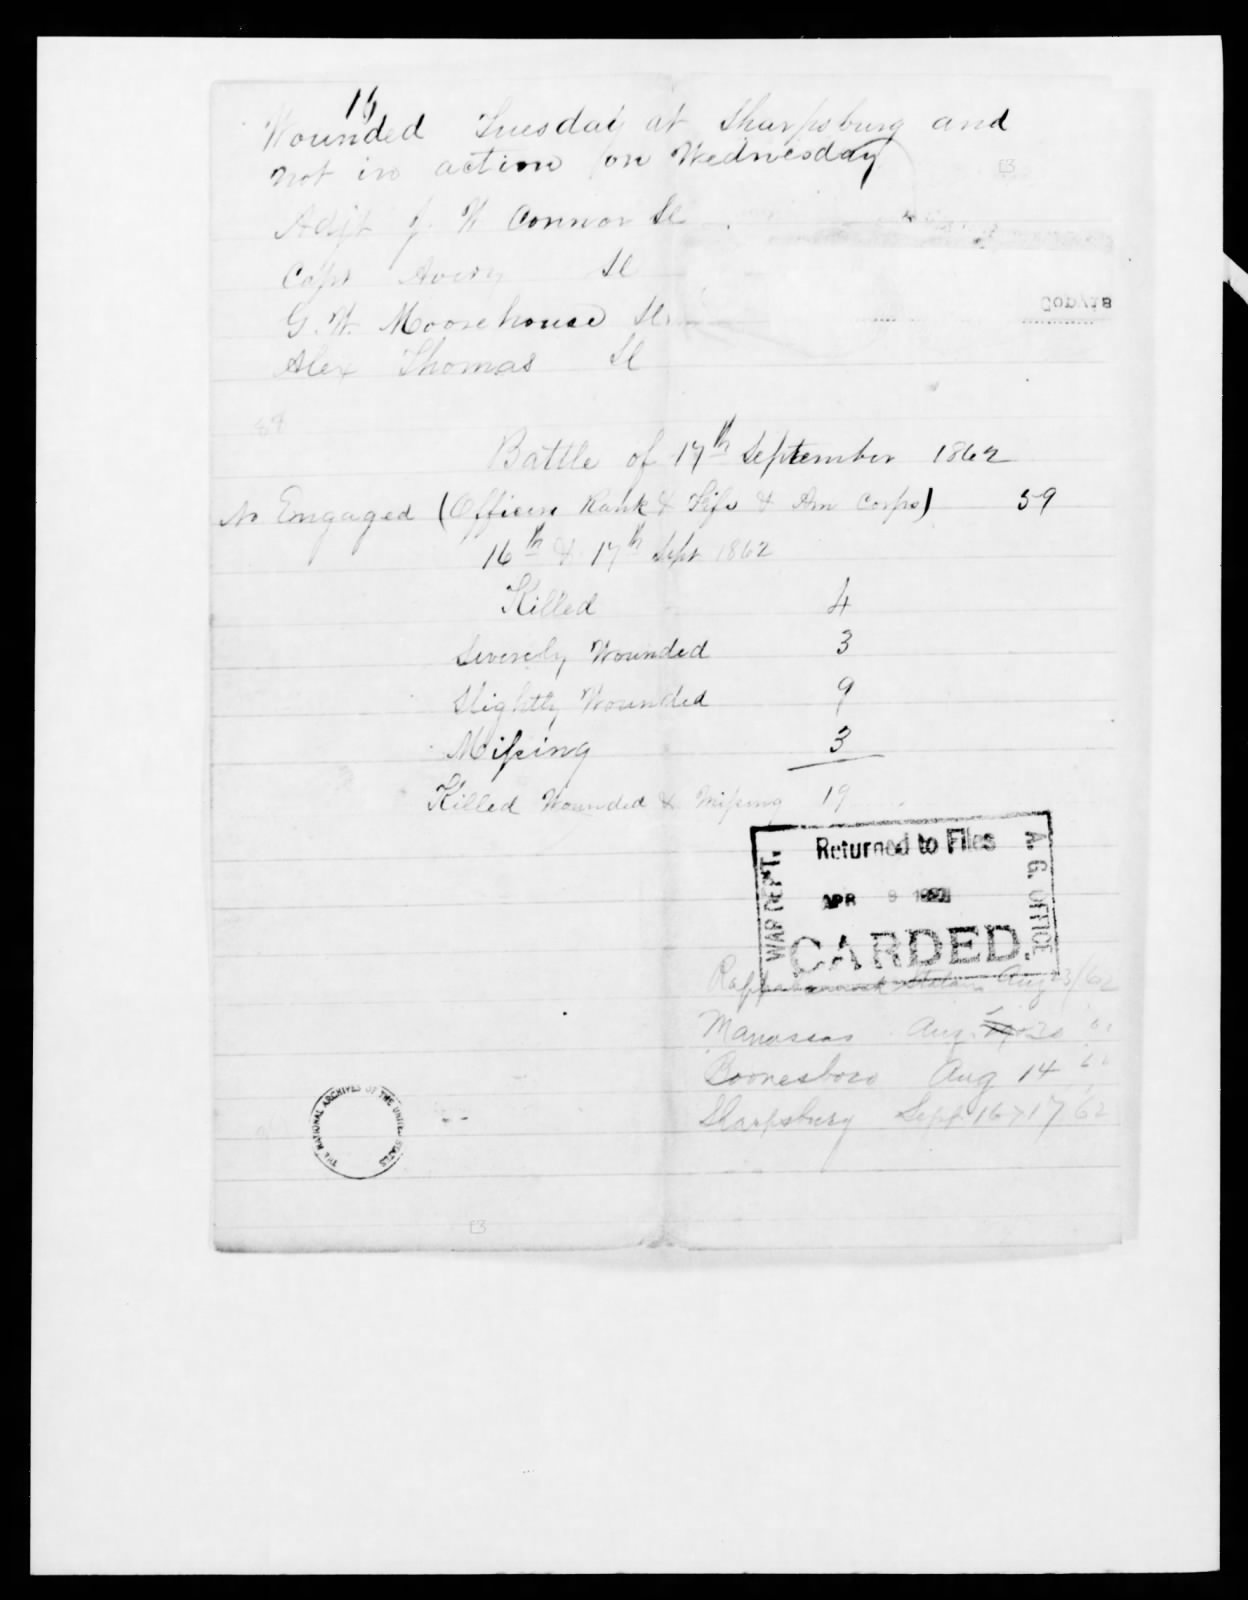 16
Wounded Tuesday at Sharpsburg and
not in action on Wednesday
Adjt J. W Connor Sl
Capt Avery Sl
G. W. Moorehouse Sl
Alex Thomas Sl
Battle of 17th September 1862
No Engaged (Officers Rank & File & Am Corps) 59
16th & 17th Sept 1862
Killed 4
Severely Wounded 3
Slightly Wounded 9
Missing 3
Killed Wounded & Missing 19
Returned to Files
WAR DEPT.
A. G. OFFICE
APR 9
CARDED.
Rappahannock Station Aug 23/62
Manassas Aug 30
Boonesboro Aug 14
Sharpsburg Sept 16 & 17 62
THE NATIONAL ARCHIVES OF THE UNITED STATES